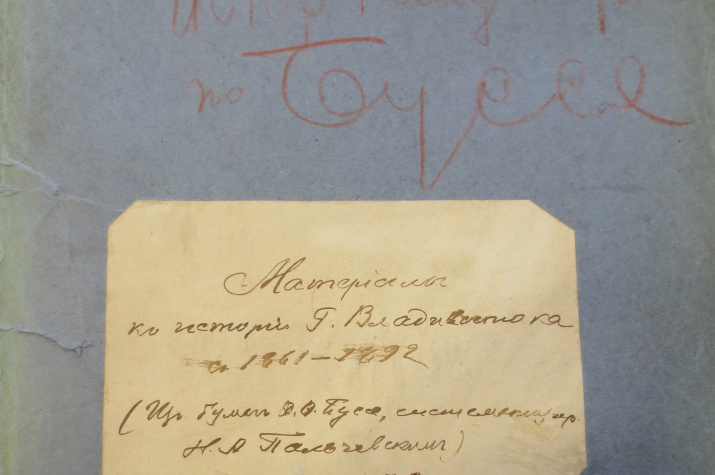 по Буссе
Матеріалы
ко исторіи Г. Владивостока
съ 1861-1892
(Изъ бумагъ Ф. Ф. Буссе, систематизир.
Н. А. Пальчевскимъ)